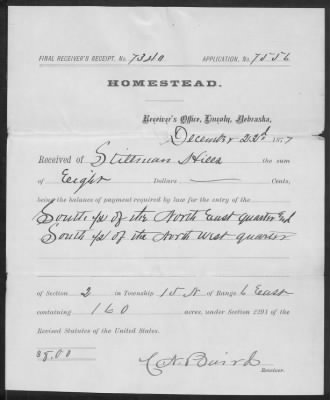 FINAL RECEIVER'S RECEIPT, No. 7340 APPLICATION, No. 7556
HOMESTEAD.
Receiver's Office, Lincoln, Nebraska,
December 22d 1877
Received of Stillman Hills the sum
of Eight Dollars — Cents,
being the balance of payment required by law for the entry of the
South ½ of the North East quarter and
South ½ of the North West quarter
of Section 2 in Township 15 N of Range 6 East
containing 160 acres, under Section 2291 of the
Revised Statutes of the United States.
$8.00
Baird
Receiver.